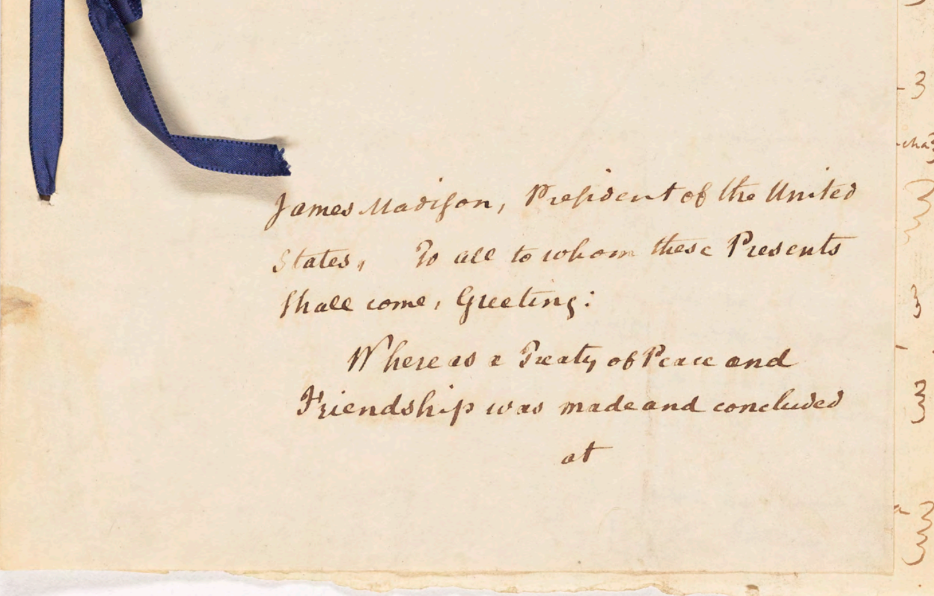 James Madiſon, Preſident of the United
States, To all to whom these Presents
Shall come, Greeting:
Whereas a Treaty of Peace and
Friendship was made and concluded
at